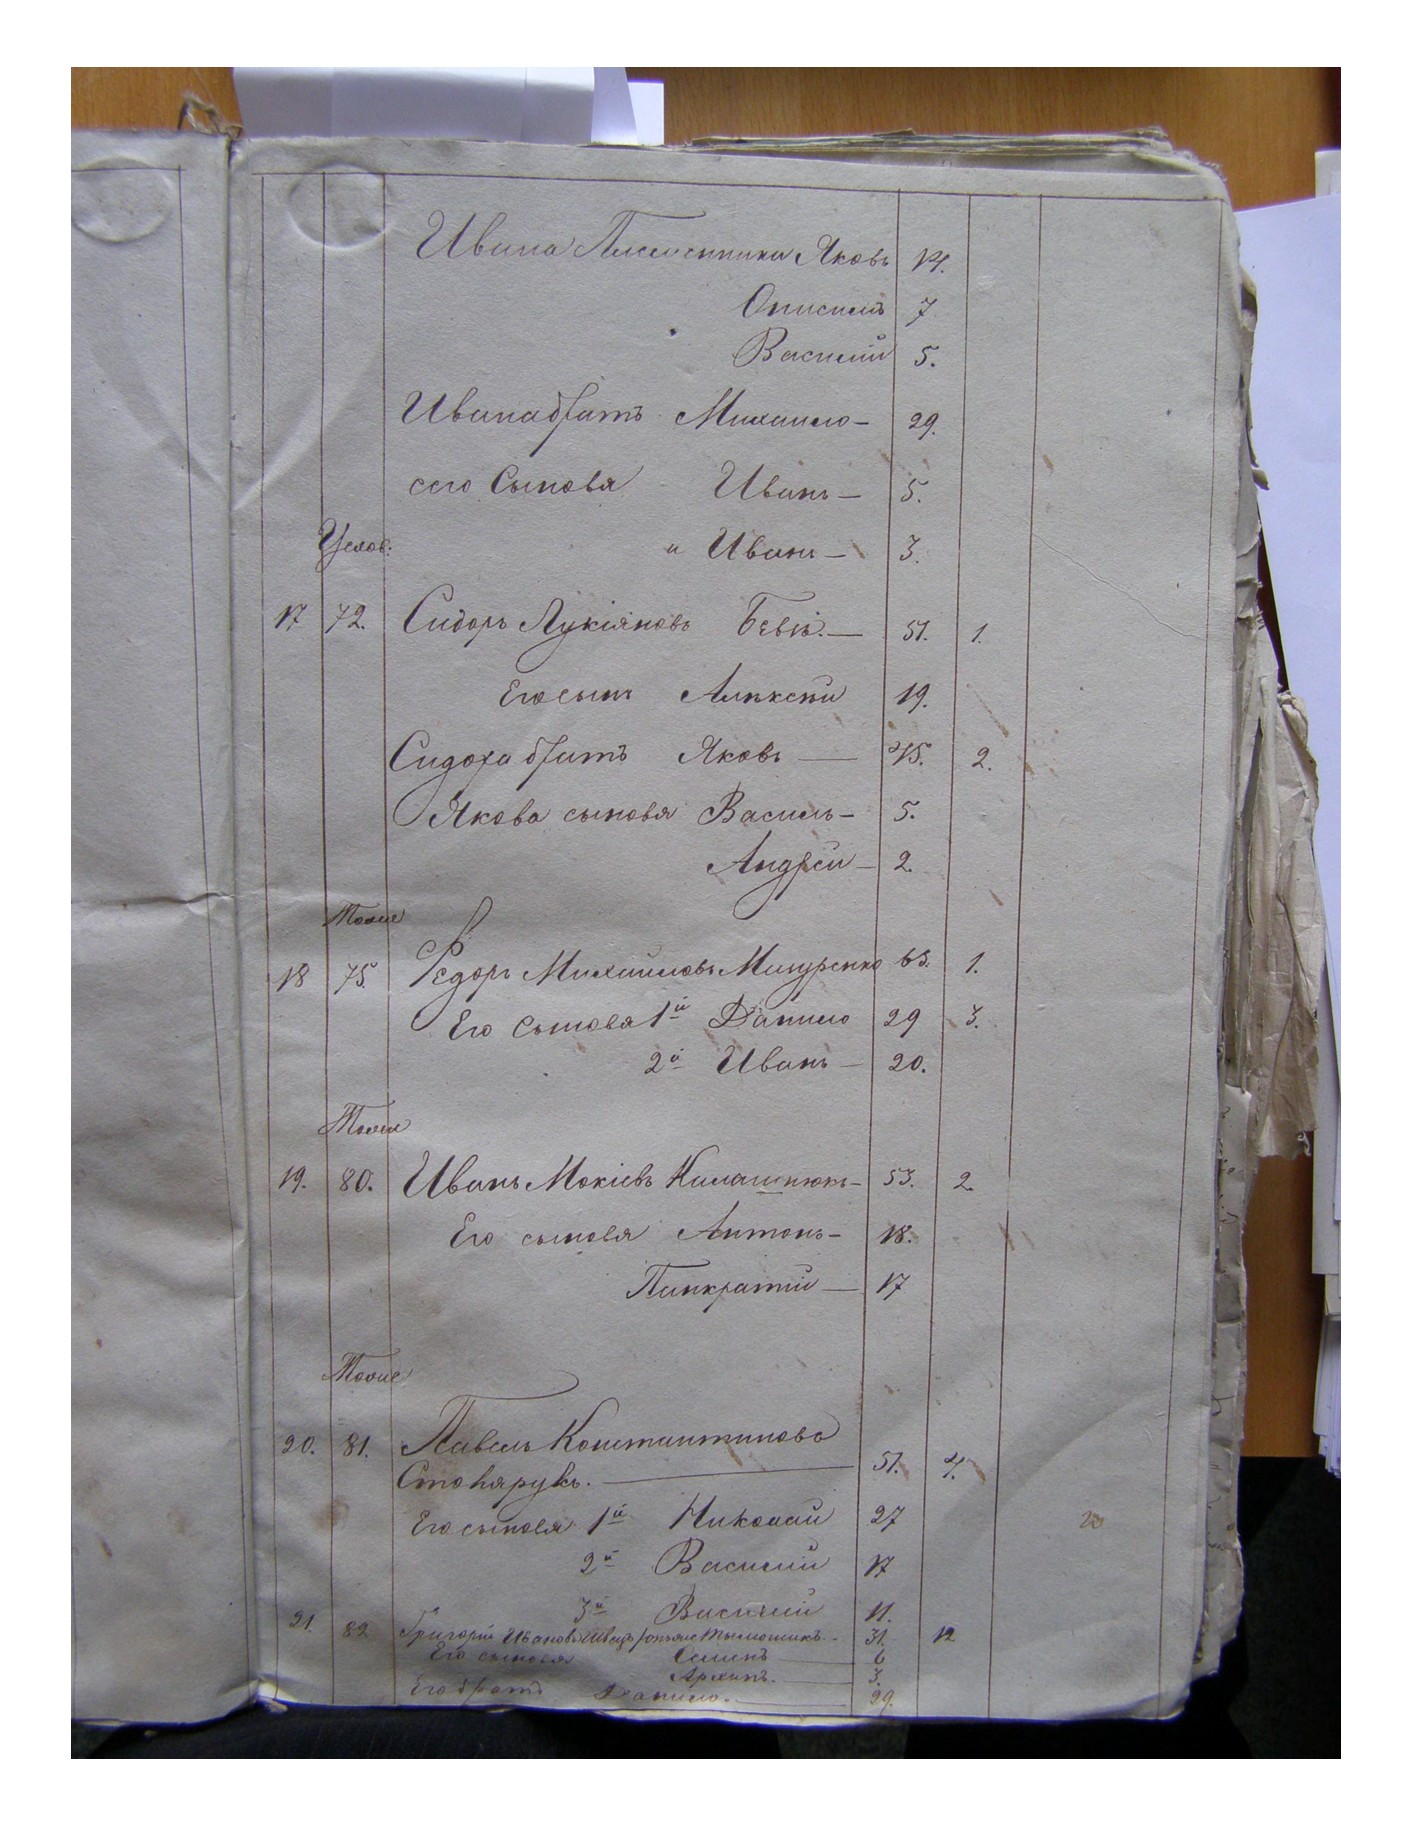 Ивана Яковъ 14.
Онисимъ 7
Василій 5.
Ивана братъ Михайло — 29.
сего Сыновья Иванъ — 5.
Услов: и Иванъ — 3.
17 72. Сидоръ Лукіяновъ — 51. 1.
Его сынъ Алексѣй 19.
Сидора братъ Яковъ — 45. 2.
Якова сыновья Василь — 5.
Андрей — 2.
Тоже
18 75. Ѳедоръ Михайловъ Мазуренко 63. 1.
Его Сыновья 1й Данило 29 3.
2й Иванъ — 20.
Тоже
19. 80. Иванъ Мокіевъ — 53. 2.
Его сыновья Антонъ — 18.
Панкратій — 17
Тоже
20. 81. Павелъ Константиновъ
Столярукъ. — 51. 4.
Его сыновья 1й Николай 27
2й Василій 17
3й Василій 11.
21. 82 Григорій Ивановъ Швецъ 31. 12
Его сыновья Семенъ — 6
Архипъ. — 3.
Его братъ Данило. — 29.